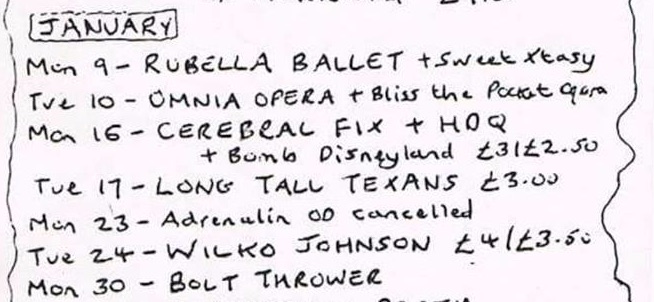 JANUARY
Mon 9 - RUBELLA BALLET + Sweet Xtasy
Tue 10 - OMNIA OPERA + Bliss the Pocket
Mon 16 - CEREBRAL FIX + HDQ
+ Bomb Disneyland £3/£2.50
Tue 17 - LONG TALL TEXANS £3.00
Mon 23 - Adrenalin OD cancelled
Tue 24 - WILKO JOHNSON £4/£3.50
Mon 30 - BOLT THROWER